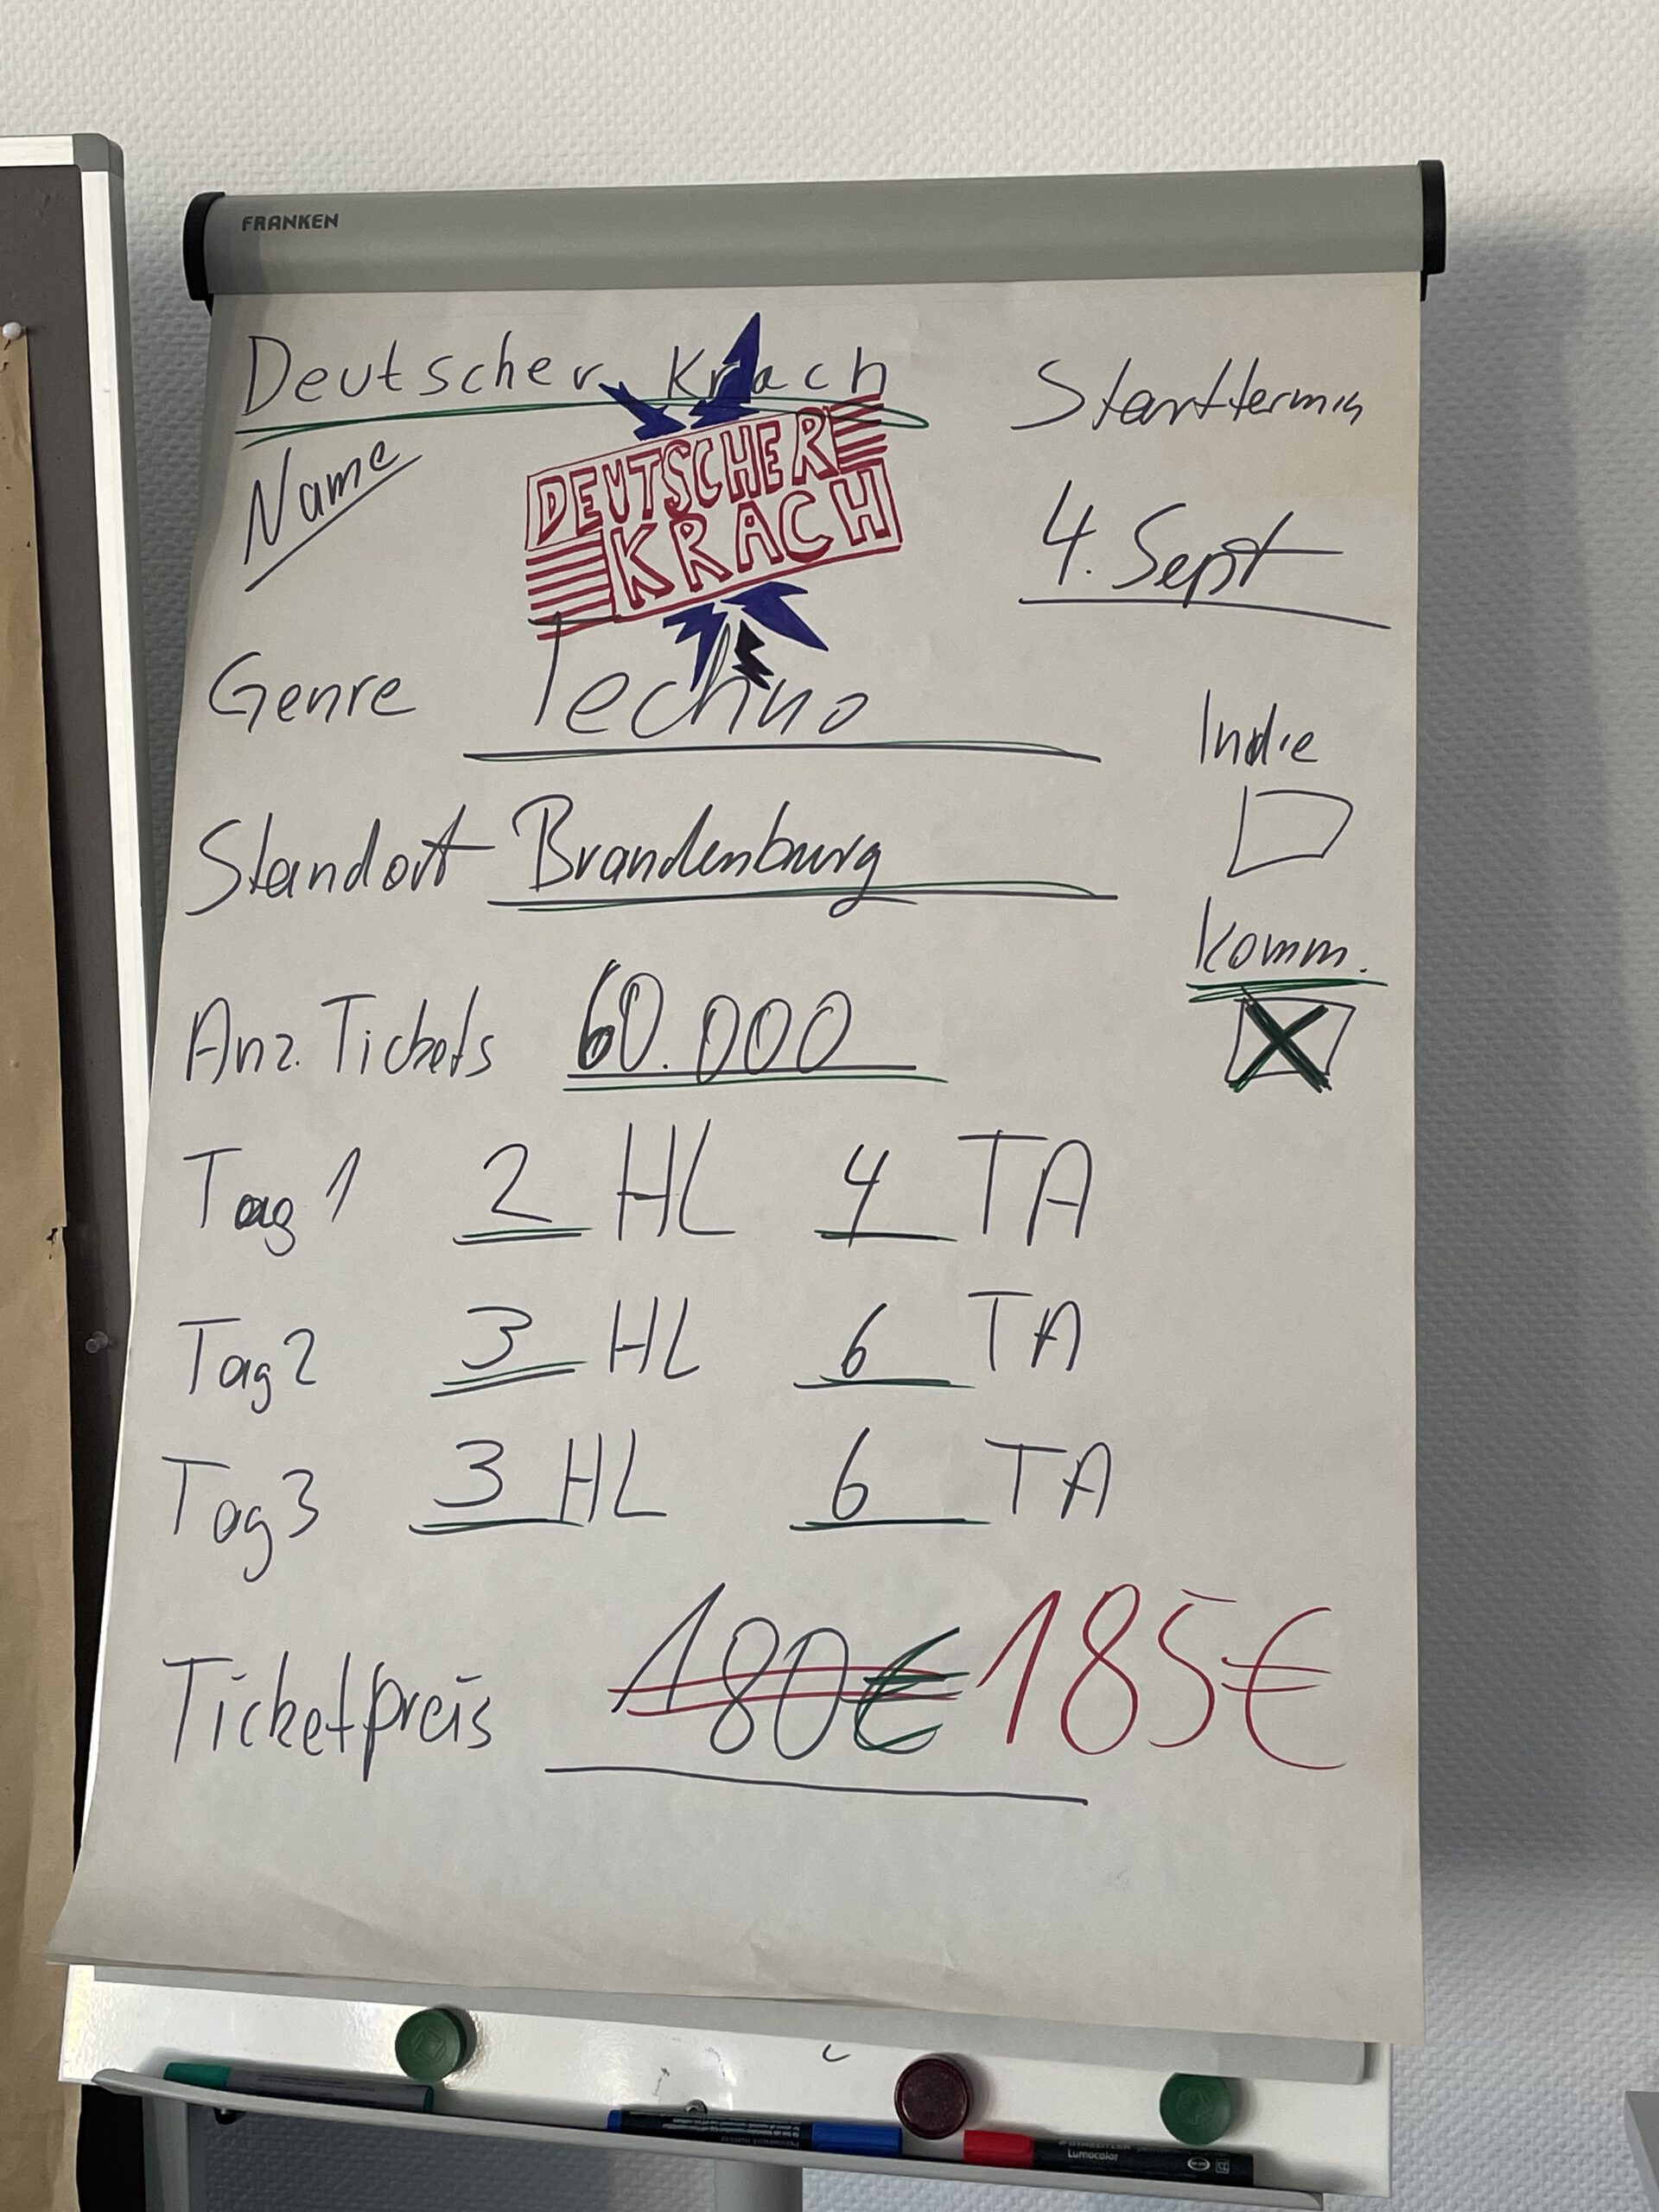 FRANKEN
Deutscher Krach
Name
DEUTSCHER
KRACH
Starttermin
4. Sept
Genre Techno
Indie
Standort Brandenburg
Komm.
Anz. Tickets 60.000
Tag 1 2 HL 4 TA
Tag 2 3 HL 6 TA
Tag 3 3 HL 6 TA
Ticketpreis 180€ 185€
STAEDTLER
Lumocolor